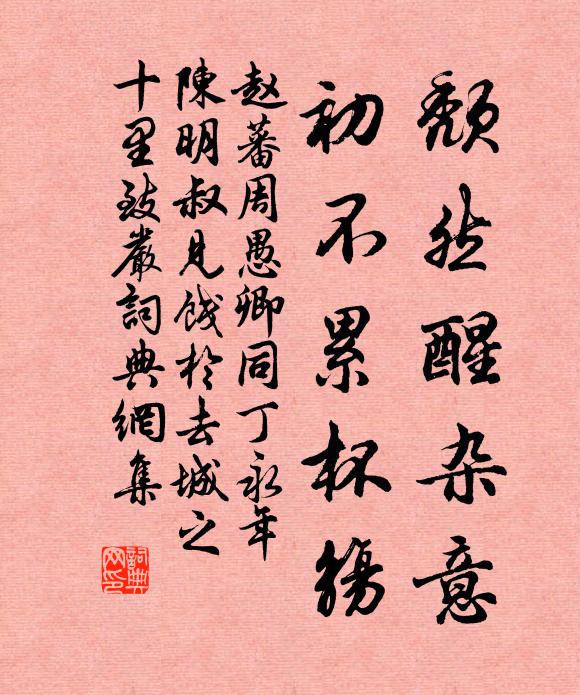 颓然醒杂意
初不累杯觞
赵蕃周愚卿同丁永年
陳明叔見餞於去城之
十里致嚴詞典網集
詞典网印